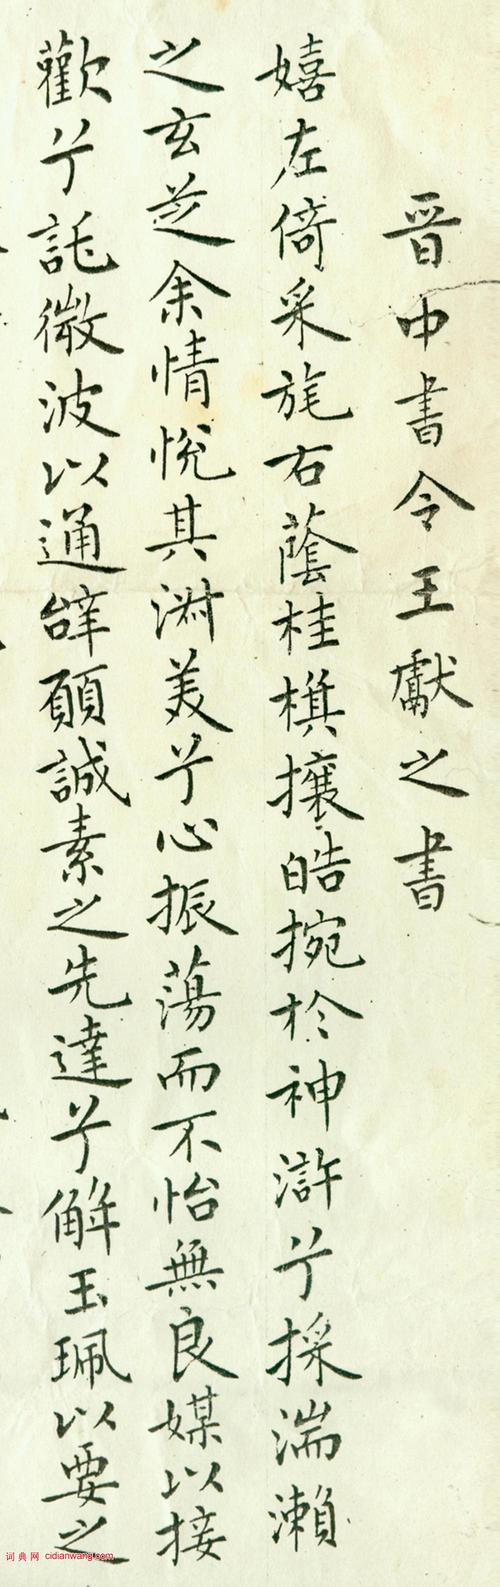 晉中書令王獻之書
嬉左倚采旄右蔭桂旗攘皓捥於神滸兮採湍瀨
之玄芝余情悅其淑美兮心振蕩而不怡無良媒以接
歡兮託微波以通辝願誠素之先達兮解玉珮以要之
词典网 cidianwang.com